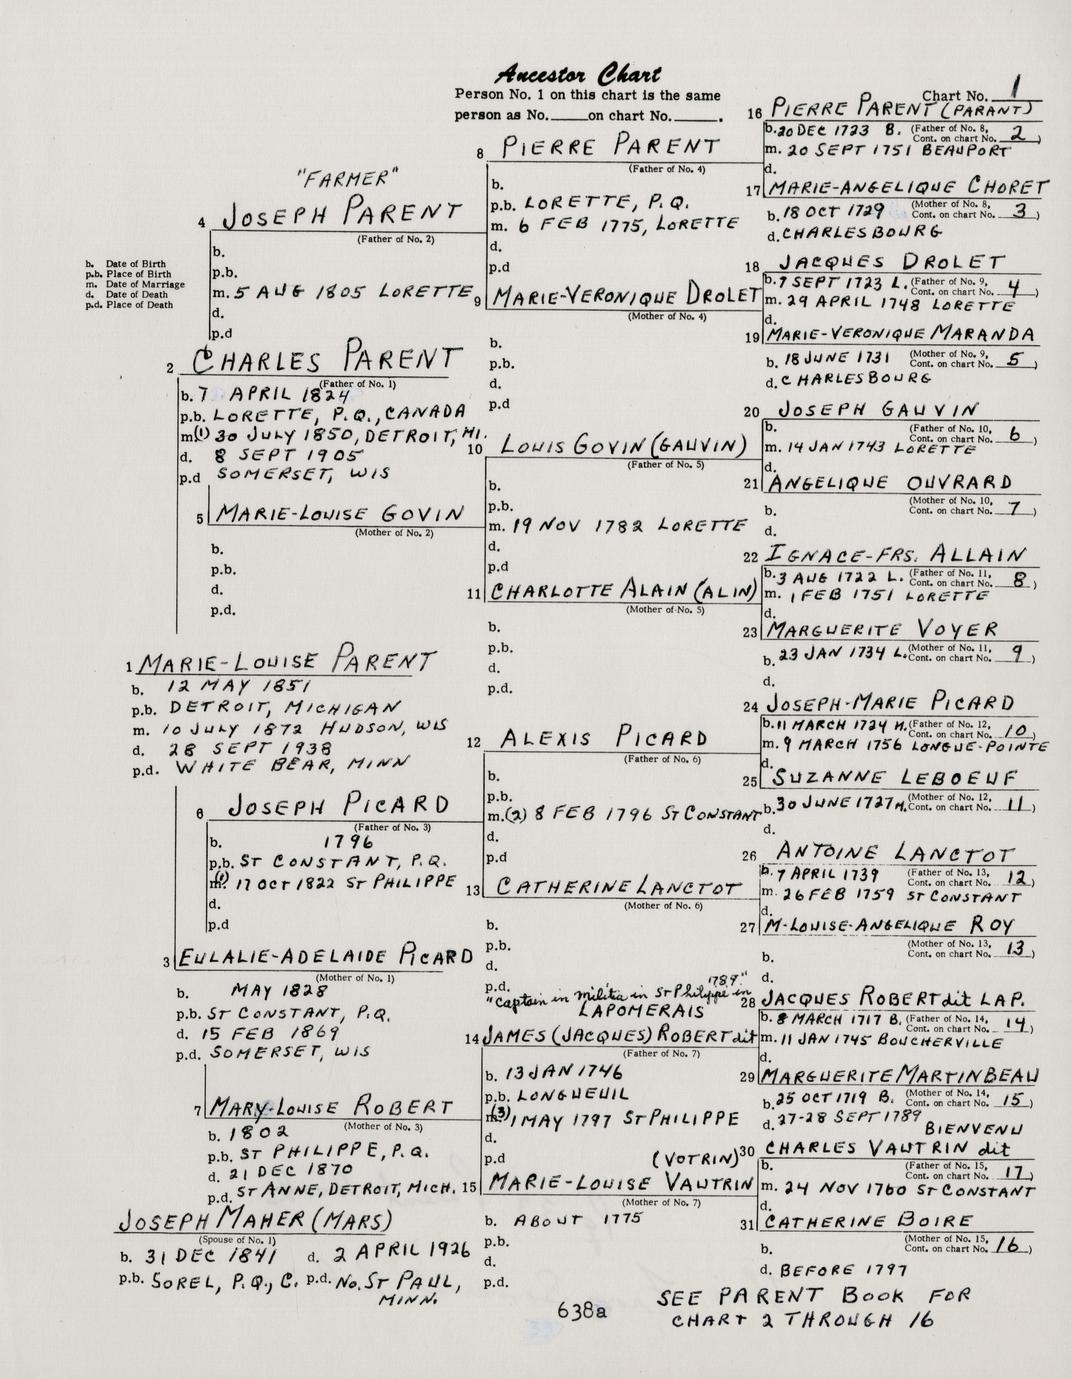 Ancestor Chart
Person No. 1 on this chart is the same
person as No. on chart No. .
Chart No. 1
"FARMER"
4 JOSEPH PARENT
(Father of No. 2)
b.
p.b.
m. 5 AUG 1805 LORETTE
d.
p.d
b. Date of Birth
p.b. Place of Birth
m. Date of Marriage
d. Date of Death
p.d. Place of Death
2 CHARLES PARENT
(Father of No. 1)
b. 7 APRIL 1824
p.b. LORETTE, P.Q., CANADA
m.(1) 30 JULY 1850, DETROIT, MI.
d. 8 SEPT 1905
p.d SOMERSET, WIS
5 MARIE-LOUISE GOVIN
(Mother of No. 2)
b.
p.b.
d.
p.d.
1 MARIE-LOUISE PARENT
b. 12 MAY 1851
p.b. DETROIT, MICHIGAN
m. 10 JULY 1872 HUDSON, WIS
d. 28 SEPT 1938
p.d. WHITE BEAR, MINN
6 JOSEPH PICARD
(Father of No. 3)
b. 1796
p.b. ST CONSTANT, P.Q.
m.(1) 17 OCT 1822 ST PHILIPPE
d.
p.d
3 EULALIE-ADELAIDE PICARD
(Mother of No. 1)
b. MAY 1828
p.b. ST CONSTANT, P.Q.
d. 15 FEB 1869
p.d. SOMERSET, WIS
7 MARY-LOUISE ROBERT
(Mother of No. 3)
b. 1802
p.b. ST PHILIPPE, P.Q.
d. 21 DEC 1870
p.d. ST ANNE, DETROIT, MICH.
JOSEPH MAHER (MARS)
(Spouse of No. 1)
b. 31 DEC 1841 d. 2 APRIL 1926
p.b. SOREL, P.Q., C. p.d. NO. ST PAUL,
MINN.
8 PIERRE PARENT
(Father of No. 4)
b.
p.b. LORETTE, P.Q.
m. 6 FEB 1775, LORETTE
d.
p.d
9 MARIE-VERONIQUE DROLET
(Mother of No. 4)
b.
p.b.
d.
p.d
10 LOUIS GOVIN (GAUVIN)
(Father of No. 5)
b.
p.b.
m. 19 NOV 1782 LORETTE
d.
p.d
11 CHARLOTTE ALAIN (ALIN)
(Mother of No. 5)
b.
p.b.
d.
p.d.
12 ALEXIS PICARD
(Father of No. 6)
b.
p.b.
m.(2) 8 FEB 1796 ST CONSTANT
d.
p.d
13 CATHERINE LANCTOT
(Mother of No. 6)
b.
p.b.
d.
p.d.
"Captain in militia in St Philippe in 1789"
LAPOMERAIS
14 JAMES (JACQUES) ROBERT dit
(Father of No. 7)
b. 13 JAN 1746
p.b. LONGUEUIL
m.(3) 1 MAY 1797 ST PHILIPPE
d.
p.d (VOTRIN)
15 MARIE-LOUISE VAUTRIN
(Mother of No. 7)
b. ABOUT 1775
p.b.
d.
p.d.
16 PIERRE PARENT (PARANT)
b. 20 DEC 1723 B. (Father of No. 8, Cont. on chart No. 2)
m. 20 SEPT 1751 BEAUPORT
d.
17 MARIE-ANGELIQUE CHORET
b. 18 OCT 1729 (Mother of No. 8, Cont. on chart No. 3)
d. CHARLESBOURG
18 JACQUES DROLET
b. 7 SEPT 1723 L. (Father of No. 9, Cont. on chart No. 4)
m. 29 APRIL 1748 LORETTE
d.
19 MARIE-VERONIQUE MARANDA
b. 18 JUNE 1731 (Mother of No. 9, Cont. on chart No. 5)
d. CHARLESBOURG
20 JOSEPH GAUVIN
b. (Father of No. 10, Cont. on chart No. 6)
m. 14 JAN 1743 LORETTE
d.
21 ANGELIQUE OUVRARD
b. (Mother of No. 10, Cont. on chart No. 7)
d.
22 IGNACE-FRS. ALLAIN
b. 3 AUG 1722 L. (Father of No. 11, Cont. on chart No. 8)
m. 1 FEB 1751 LORETTE
d.
23 MARGUERITE VOYER
b. 23 JAN 1734 L. (Mother of No. 11, Cont. on chart No. 9)
d.
24 JOSEPH-MARIE PICARD
b. 11 MARCH 1724 M. (Father of No. 12, Cont. on chart No. 10)
m. 9 MARCH 1756 LONGUE-POINTE
d.
25 SUZANNE LEBOEUF
b. 30 JUNE 1727 M. (Mother of No. 12, Cont. on chart No. 11)
d.
26 ANTOINE LANCTOT
b. 7 APRIL 1739 (Father of No. 13, Cont. on chart No. 12)
m. 26 FEB 1759 ST CONSTANT
d.
27 M-LOUISE-ANGELIQUE ROY
b. (Mother of No. 13, Cont. on chart No. 13)
d.
28 JACQUES ROBERT dit LAP.
b. 8 MARCH 1717 B. (Father of No. 14, Cont. on chart No. 14)
m. 11 JAN 1745 BOUCHERVILLE
d.
29 MARGUERITE MARTINBEAU
b. 25 OCT 1719 B. (Mother of No. 14, Cont. on chart No. 15)
d. 27-28 SEPT 1789
BIENVENU
30 CHARLES VAUTRIN dit
b. (Father of No. 15, Cont. on chart No. 17)
m. 24 NOV 1760 ST CONSTANT
d.
31 CATHERINE BOIRE
b. (Mother of No. 15, Cont. on chart No. 16)
d. BEFORE 1797
SEE PARENT BOOK FOR
CHART 2 THROUGH 16
638a